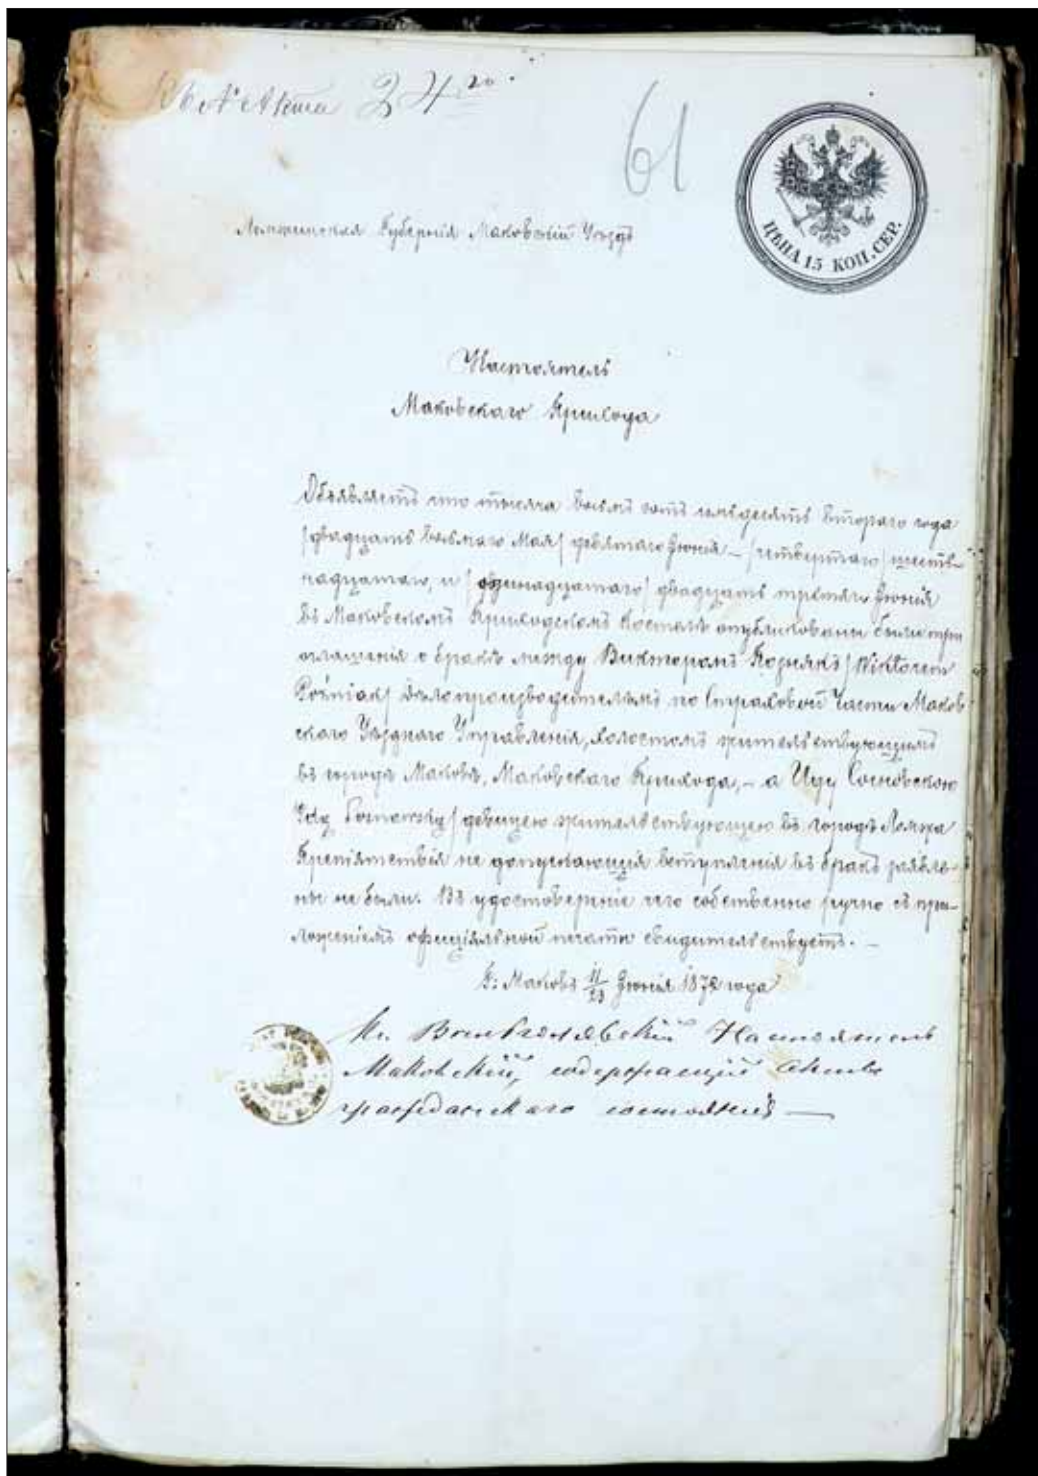 № Акта 34го
61
ЦѢНА 15 КОП. СЕР.
Ломжинская Губернія Маковскій Уѣздъ
Настоятель
Маковскаго Прихода
Объявляетъ что тысяча восемь сотъ семьдесятъ втораго года
/двадцать восьмаго Мая/ девятаго Іюня – /четвертаго/ шест-
надцатаго, и /одинадцатаго/ двадцать третяго Іюня
въ Маковскомъ Приходскомъ Костелѣ опубликованы были три
оглашенія о бракѣ между Викторомъ Позьнякъ /Wiktorem
Poźniak/ дѣлопроизводителемъ по Страховой Части Маков-
скаго Уѣзднаго Управленія, холостомъ жительствующимъ
въ городѣ Маковѣ, Маковскаго Прихода, – а Иду Сосновскою
Idą Sosnowską/ дѣвицею жительствующею въ городѣ Ломжа
Препятствія не допускающія вступленія въ бракъ заявле-
ны не были. Въ удостовереніе чего собственно ручно съ при-
ложеніемъ офиціяльной печати свидительствуетъ. –
Г: Маковъ 11/23 Іюня 1872 года
Кс. Настоятель
Маковскій, содержащій Акты
гражданскаго состоянія —